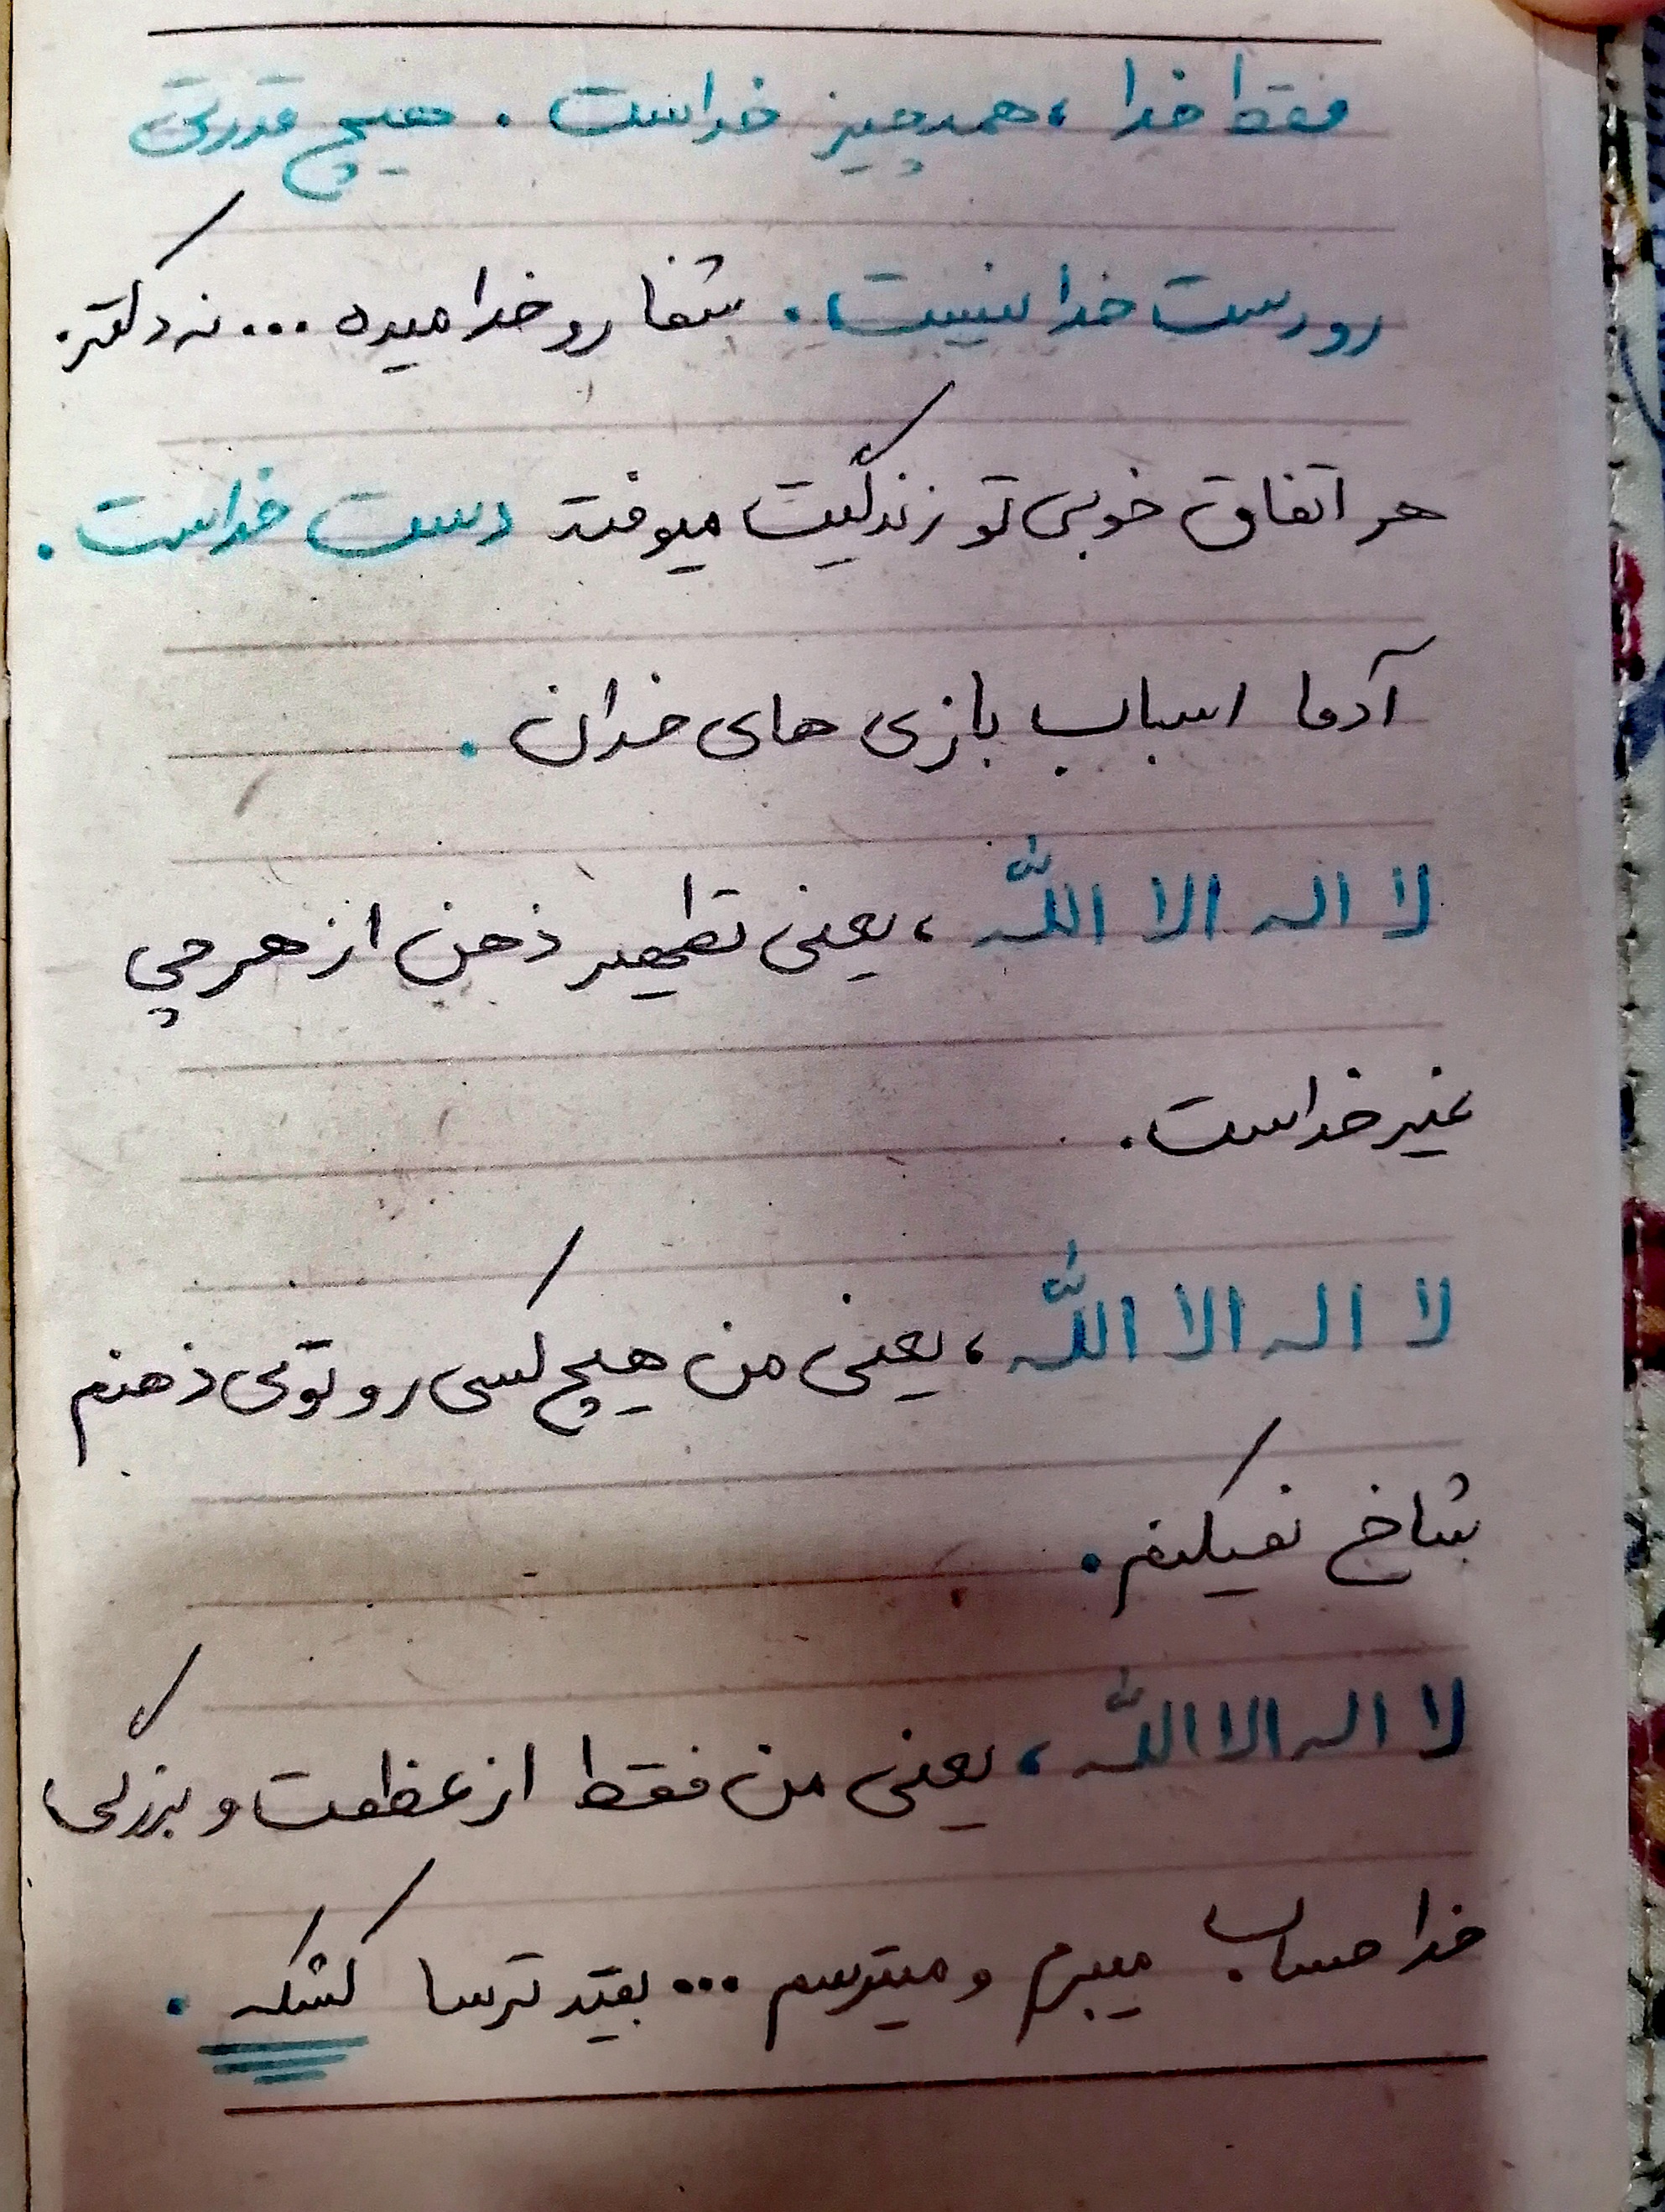 فقط خدا، همه چیز خداست. هیچ قدرتی
رو دست خدا نیست. شفا رو خدا میده... نه دکتر.
هر اتفاق خوبی تو زندگیت میوفته دست خداست.
آدما اسباب بازی های خدان.
لا اله الا اللّه، یعنی تطهیر ذهن از هر چی
غیر خداست.
لا اله الا اللّه، یعنی من هیچ کسی رو توی ذهنم
شاخ نمیکنم.
لا اله الا اللّه، یعنی من فقط از عظمت و بزرگی
خدا حساب میبرم و میترسم... بقیه ترسا کشکه.